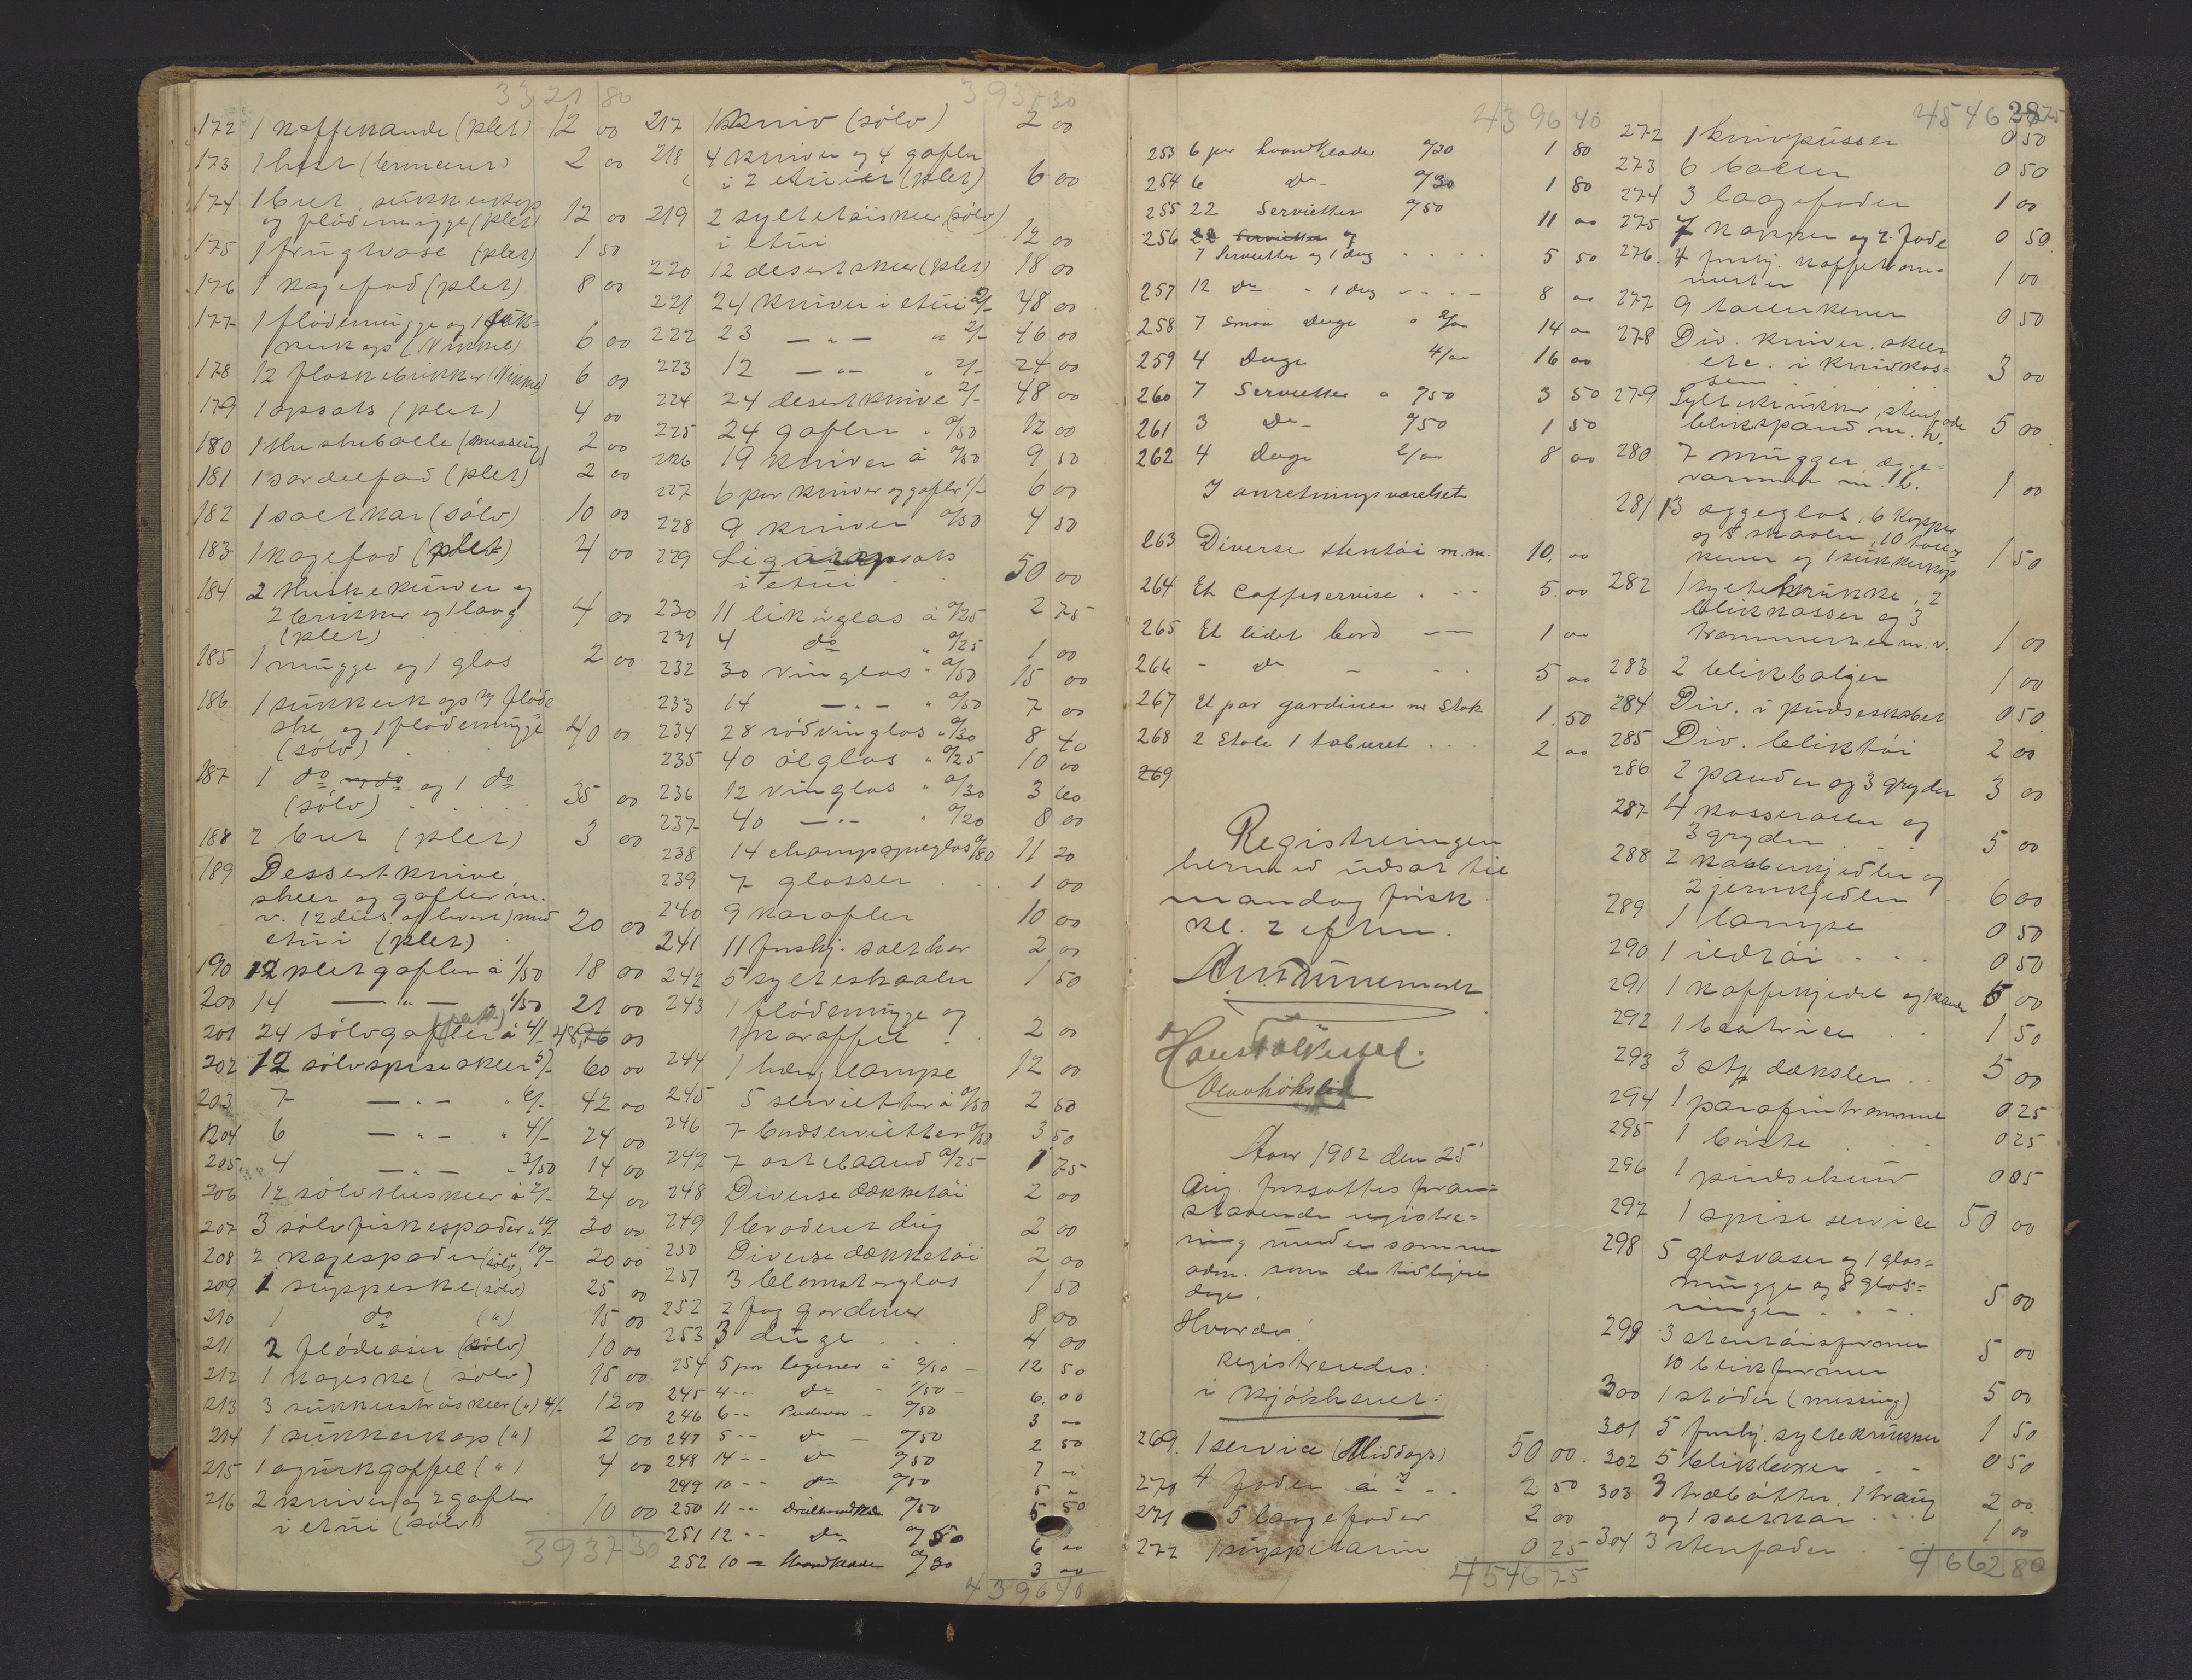 3321 80
172 1 kaffekande (plet) 12 00
173 1 2 00
174 1 bret, sukkerkop
og flödemugge (plet) 12 00
175 1 frugtvase (plet) 1 50
176 1 kagefad (plet) 8 00
177 1 flödemugge og 1 suk=
kerkop (Nikkel) 6 00
178 12 flaskebrikker (Nikkel) 6 00
179 1 opsats (plet) 4 00
180 1 theskebolle (messing) 2 00
181 1 sardelfad (plet) 2 00
182 1 saltkar (sölv) 10 00
183 1 kagefad (plet) 4 00
184 2 kurver og
2 brikker og 1 laag
(plet) 4 00
185 1 mugge og 1 glas 2 00
186 1 sukkerkop og flöde
ske og 1 flödemugge
(sölv) 40 00
187 1 do og do og 1 do
(sölv) 35 00
188 2 bret (plet) 3 00
189 Dessertknive
skeer og gafler m.
v. (2 dus. af hvert) med
etui (plet) 20 00
190 12 pletgafler à 1/50 18 00
200 14 — " — 1/50 21 00
201 24 sölvgafler à 4/- 48 00
202 12 sölvspiseskeer 5/- 60 00
203 7 — " — 6/- 42 00
204 6 — " — " 4/- 24 00
205 4 — " — " 3/50 14 00
206 12 sölvtheskeer à 2/- 24 00
207 3 sölvfiskespader " 10/- 30 00
208 2 kagespader (sölv) 10/- 20 00
209 1 suppeske (sölv) 25 00
210 1 do (") 15 00
211 2 flödeöser (sölv) 10 00
212 1 kageske (sölv) 15 00
213 3 sukkerströskeer (") 4/- 12 00
214 1 sukkerkop (") 2 00
215 1 agurkgaffel (") 4 00
216 2 kniver og 2 gafler
i etui (sölv) 10 00
3937 30
3937 30
217 1 kniv (sölv) 2 00
218 4 kniver og 4 gafler
i 2 etuier (plet) 6 00
219 2 syltetöiskeer (sölv)
i etui 12 00
220 12 desertskeer (plet) 18 00
221 24 kniver i etui 2/- 48 00
222 23 — " — " 2/- 46 00
223 12 — " — " 2/- 24 00
224 24 desertknive 2/- 48 00
225 24 gafler " 0/50 12 00
226 19 kniver à 0/50 9 50
227 6 par kniver og gafler 1/- 6 00
228 9 kniver 0/50 4 50
229 Ligaropsats
i etui 50 00
230 11 likörglas à 0/25 2 75
231 4 do " 0/25 1 00
232 30 vinglas " 0/50 15 00
233 14 — " — " 0/50 7 00
234 28 rödvinglas " 0/30 8 40
235 40 ölglas " 0/25 10 00
236 12 vinglas " 0/30 3 60
237 40 — " — " 0/20 8 00
238 14 champagneglas 0/80 11 20
239 7 glasser 1 00
240 9 karafler 10 00
241 11 forskj. saltkar 2 00
242 5 sylteskaaler 1 50
243 1 flödemugge og
1 karaffel 2 00
244 1 hængelampe 12 00
245 5 servietter à 0/50 2 50
246 7 bordservietter 0/50 3 50
247 7 ostebaand 0/25 1 75
248 Diverse dækketöi 2 00
249 1 broderet dug 2 00
250 Diverse dækketöi 2 00
251 3 blomsterglas 1 50
252 2 fag gardiner 8 00
253 3 duge 4 00
254 5 par lagener à 2/50 — 12 50
245 4 -- do - 1/50 — 6.00
246 6 -- Pudevar — 0/50 3 00
247 5 -- do — 0/50 2 50
248 14 -- do 0/50 7 00
249 10 -- do 0/50 5 00
250 11 -- 0/50 5 50
251 12 -- do 0/50 6 00
252 10 — Haandklæder 0/30 3 00
4396 40
4396 40
253 6 par haandklæder 0/30 1 80
254 6 do 0/30 1 80
255 22 Servietter 0/50 11 00
256 22 Servietter og
7 Servietter og 1 dug 5 50
257 12 do - 1 dug 8 00
258 7 Smaa Duge a 2/00 14 00
259 4 Duge 4/00 16 00
260 7 Servietter a 0/50 3 50
261 3 do 0/50 1 50
262 4 Duge 2/00 8 00
I anretningsværelset
263 Diverse stentöi m.m. 10.00
264 Et Caffeservise 5.00
265 Et lidet bord — 1 00
266 - do - 5 00
267 Et par gardiner m Stok 1.50
268 2 Stole 1 taburet 2 00
269
Registreringen
hermed udsat til
mandag förstk.
kl. 2 efterm.
Aar 1902 den 25
Aug. fortsattes foran=
staaende registre=
ring under samme
adm. som de tidligere
dage.
Hvorda:
Registreredes:
i kjökkenet:
269. 1 service (Middags) 50 00
270 4 fader 2 50
271 5 laagefader 2 00
272 1 suppeterin 0 25
4546 75
4546 75
272 1 knivpusser 0 50
273 6 boller 0 50
274 3 laagefader 1 00
275 7 kopper og 2 fade 0 50
276. 4 forskj. kaffetrom=
mer 1 00
277 9 tallerkener 0 50
278 Div. kniver, skeer
etc. i knivkas=
sen 3 00
279 Syltekrukker, stenfade
blikspand m. v. 5 00
280 7 mugger, ægge=
varmer m. v. 1 00
281 13 æggeglas, 6 kopper
og 8 skaaler, 10 taller
kener og 1 sukkerkop 1 50
282 1 syltekrukke, 2
blikkasser og 3
trommer m. v. 1 00
283 2 blikbaljer 1 00
284 Div. i pudseskabet 0 50
285 Div. bliktöi 2 00
286 2 pander og 3 gryder 3 00
287 4 kasseroller og
3 gryder 5 00
288 2 kobberkjedler og
2 jernkjedler 6 00
289 1 lampe 0 50
290 1 ildtöi 0 50
291 1 kaffekjedel og 1 kande 5 00
292 1 beatrice 1 50
293 3 stk dæksler 5 00
294 1 parafintromme 0 25
295 1 börste 0 25
296 1 pudsekurv 0 05
297 1 spise service 50 00
298 5 glasvaser og 1 glas=
mugge og 8 glas=
ringer 5 00
299 3 stentöisformer
10 blikformer 5 00
300 1 stöder (messing) 5 00
301 5 forskj. syltekrukker 1 50
302 5 blikboxer 0 50
303 3 træbötter, 1 traug
og 1 saltkar 2 00
304 3 stenfader 1 00
4662 80